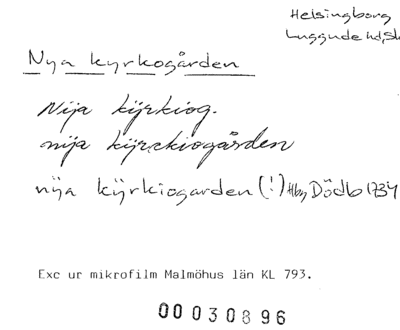 Helsingborg
Luggude hd, Sk
Nya kyrkogården
Nÿa kÿrkiog.
nÿa kÿrckiogården
nÿa kÿrkiogarden (!) Hbg Dödb 1734
Exc ur mikrofilm Malmöhus län KL 793.
00030896